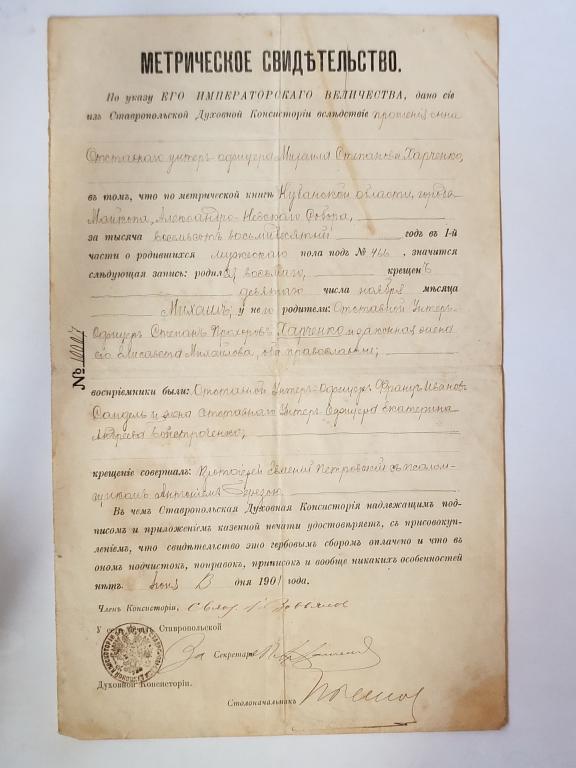 МЕТРИЧЕСКОЕ СВИДѢТЕЛЬСТВО.
По указу ЕГО ИМПЕРАТОРСКАГО ВЕЛИЧЕСТВА, дано сіе
изъ Ставропольской Духовной Консисторіи вслѣдствіе прошенія сына
Отставнаго унтеръ-офицера Михаила Степанова Харченко,
въ томъ, что по метрической книгѣ Кубанской области, города
Майкопа, Александро-Невскаго Собора,
за тысяча восемьсотъ восьмидесятый годъ въ 1-й
части о родившихся мужескаго пола подъ № 466, значится
слѣдующая запись: родился восьмаго, крещенъ
девятаго числа ноября мѣсяца
Михаилъ; у него родители: Отставной Унтеръ-
Офицеръ Степанъ Прохоровъ Харченко и законная жена
его Елисавета Михайлова, оба православные;
воспріемники были: Отставной Унтеръ-Офицеръ Францъ Ивановъ
и жена отставнаго Унтеръ-Офицера Екатерина
Андреева
крещеніе совершалъ: Протоіерей Евгеній Петровскій съ псалом-
щикомъ
Въ чемъ Ставропольская Духовная Консисторія надлежащимъ под-
писомъ и приложеніемъ казенной печати удостовѣряетъ, съ присовокуп-
леніемъ, что свидѣтельство это гербовымъ сборомъ оплачено и что въ
ономъ подчистокъ, поправокъ, приписокъ и вообще никакихъ особенностей
нѣтъ. дня 1901 года.
Членъ Консисторіи,
У Ставропольской
За Секретаря
Духовной Консисторіи.
Столоначальникъ
№